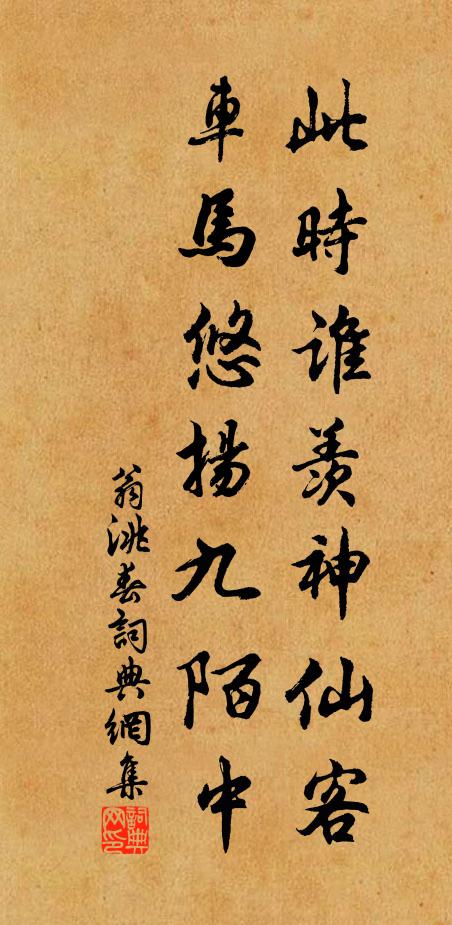 此時誰羨神仙客
車馬悠揚九陌中
翁洮春詞典網集
詞典網印